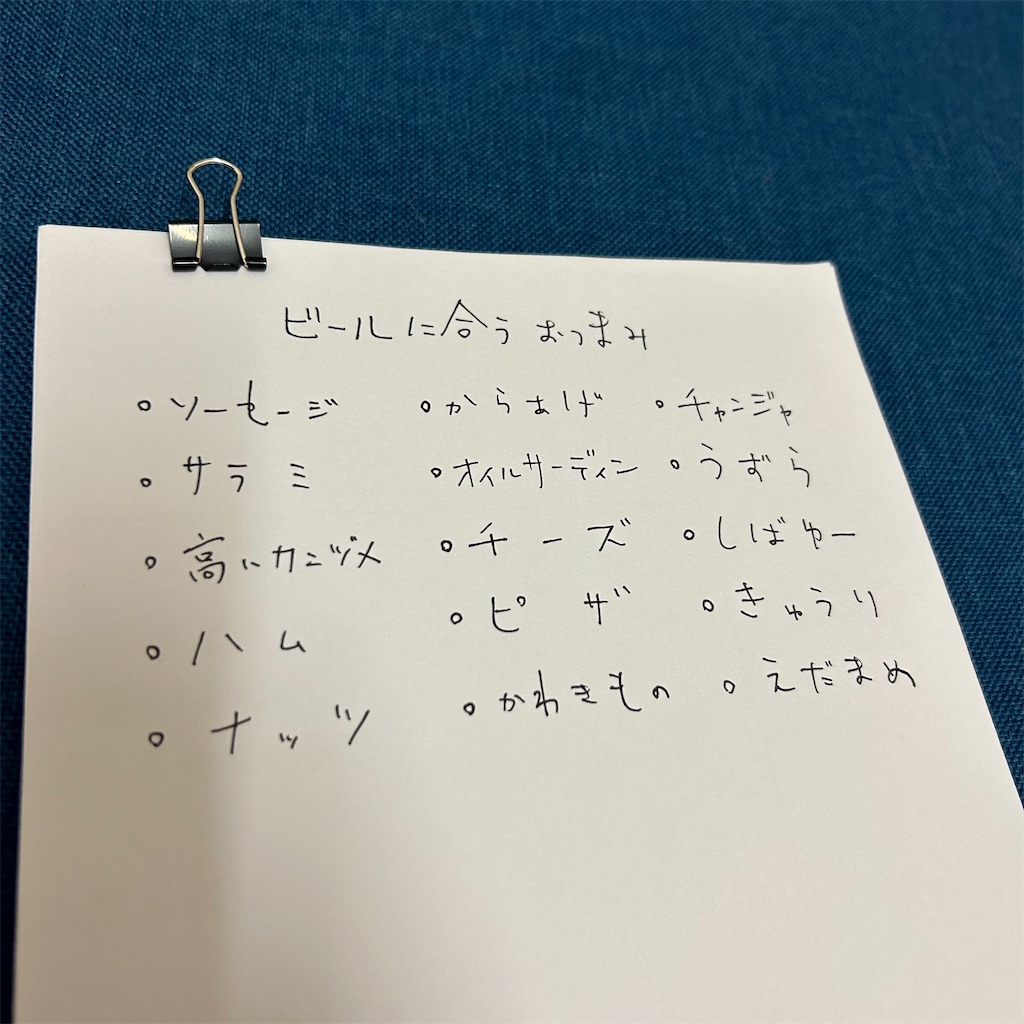 ビールに合うおつまみ
○ ソーセージ ○ からあげ ○ チャンジャ
○ サラミ ○ オイルサーディン ○ うずら
○ 高いカンヅメ ○ チーズ ○ しばゆー
○ ハム ○ ピザ ○ きゅうり
○ ナッツ ○ かわきもの ○ えだまめ